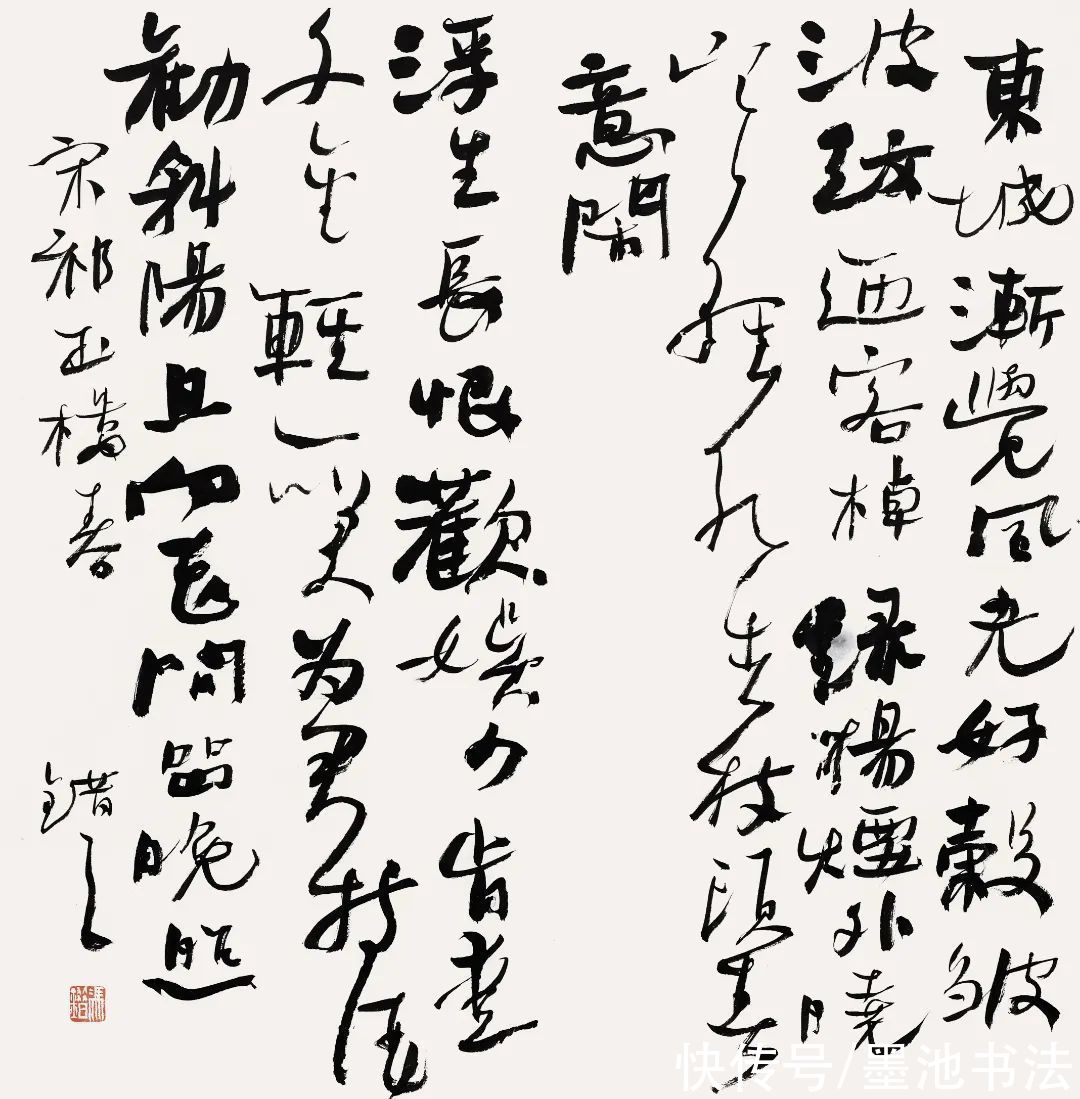 東城漸覺風光好縠皺
波紋迎客棹綠楊煙外曉
寒輕紅杏枝頭春
意鬧
浮生長恨歡娛少肯愛
千金輕一笑为君持酒
勸斜陽且向花間留晚照
宋祁玉樓春 錯之
快传号/墨池书法